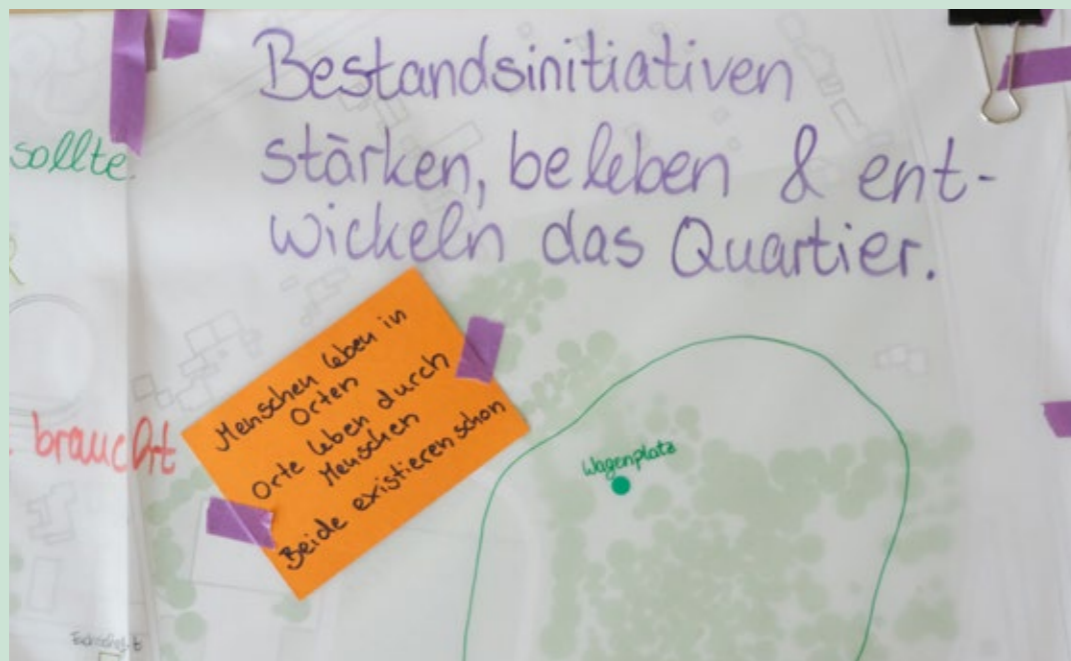 Bestandsinitiativen
stärken, beleben & ent-
wickeln das Quartier.
sollte
braucht
Menschen leben in
Orten
Orte leben durch
Menschen
Beide existieren schon
Wagenplatz